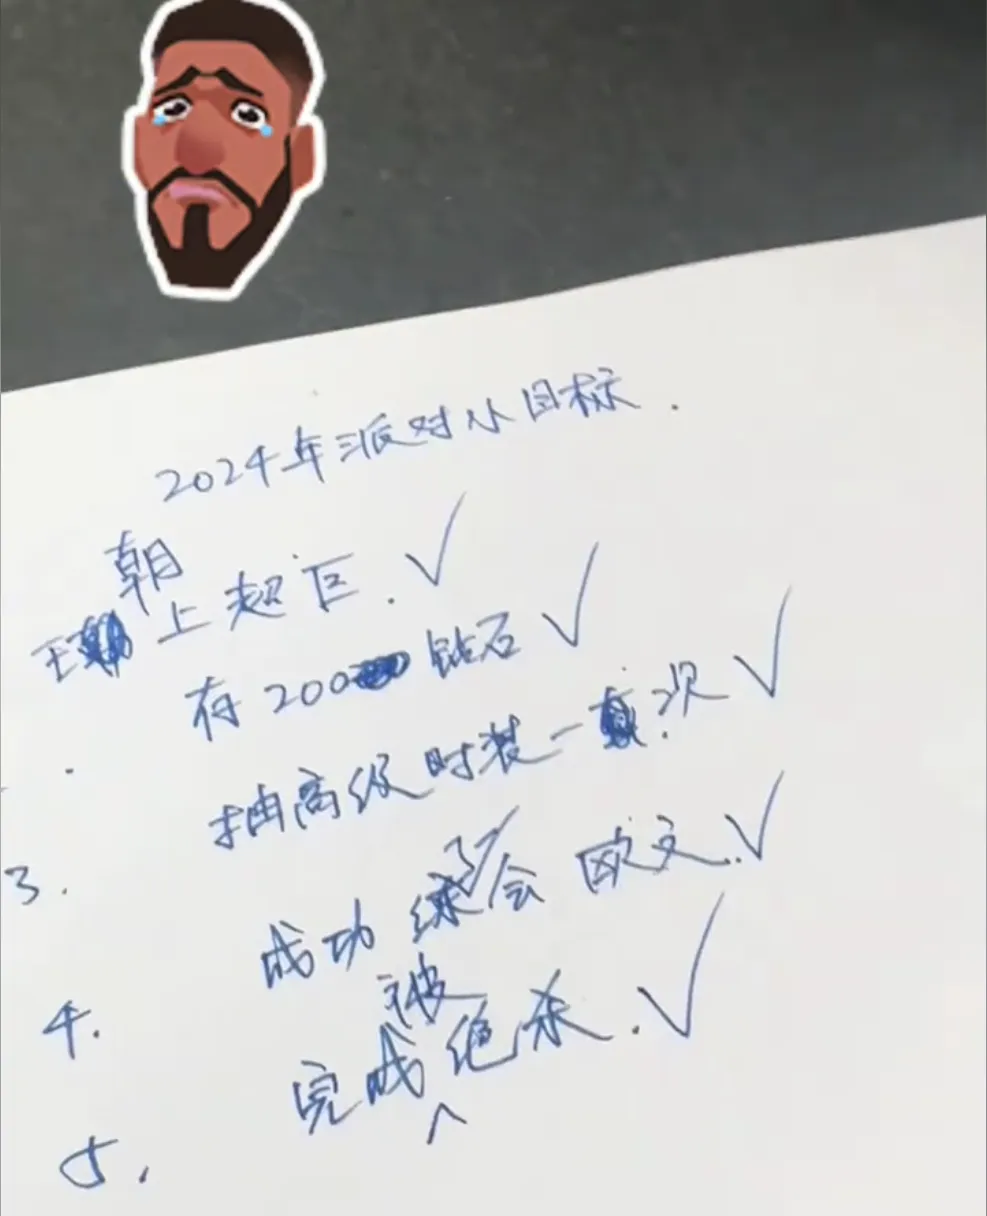 2024年派对小目标.
朝
王 上超巨.✓
存200 钻石✓
抽高级时装一 次✓
3.
了
成功 会欧文.✓
4.
被
完成绝杀.✓
^
5.